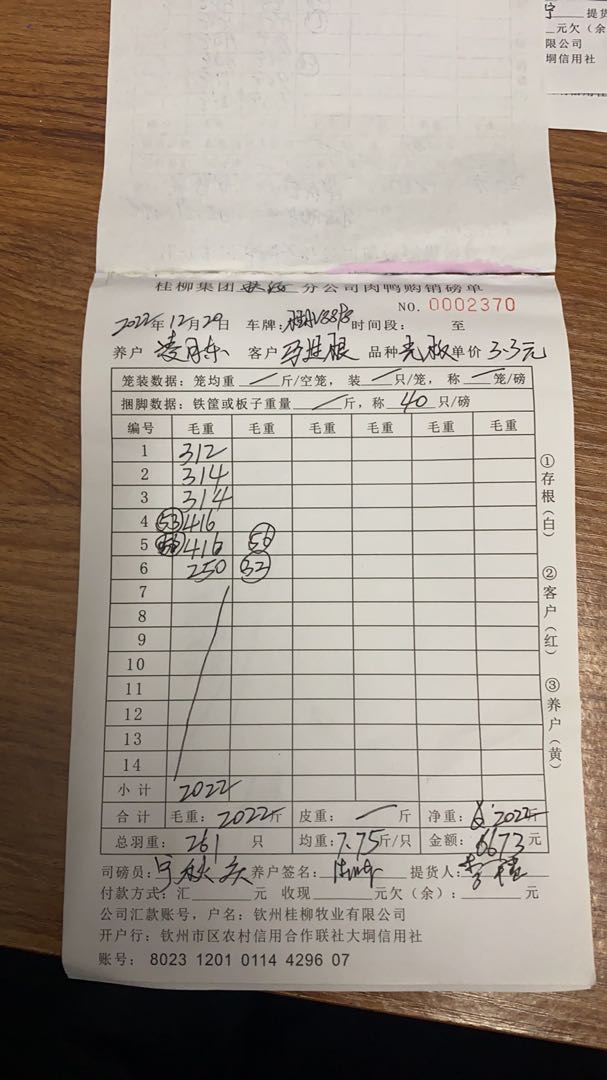 提货
元欠（余
限公司
垌信用社
桂柳集团 分公司肉鸭购销磅单
NO. 0002370
2022年12月29日 车牌： 时间段： 至
养户 客户 品种 光板 单价 3.3元
笼装数据：笼均重 / 斤/空笼，装 / 只/笼，称 / 笼/磅
捆脚数据：铁筐或板子重量 / 斤，称 40 只/磅
编号 毛重 毛重 毛重 毛重 毛重 毛重
1 312
2 314
3 314
4 53 416
5 416 56
6 250 32
7
8
9
10
11
12
13
14
小计 2022
合计 毛重：2022斤 皮重：/ 斤 净重：2022斤
总羽重：261 只 均重：7.75斤/只 金额：6673元
司磅员： 养户签名： 提货人：
付款方式：汇 元 收现 元欠（余）： 元
公司汇款账号，户名：钦州桂柳牧业有限公司
开户行：钦州市区农村信用合作联社大垌信用社
账号： 8023 1201 0114 4296 07
①存根（白）
②客户（红）
③养户（黄）